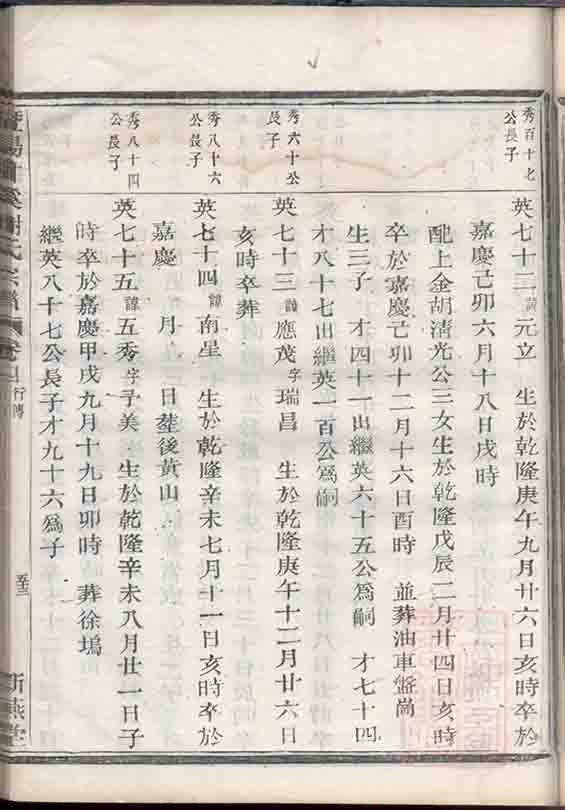 秀百十七
公長子
英七十二諱元立 生於乾隆庚午九月廿六日亥時卒於
嘉慶己卯六月十八日戌時
配上金胡清光公三女生於乾隆戊辰二月廿四日亥時
卒於嘉慶己卯十二月十六日酉時 並葬油車盤崗
生三子 才四十一出繼英六十五公爲嗣 才七十四
才八十七出繼英一百公爲嗣
秀六十公
長子
英七十三諱應茂字瑞昌 生於乾隆庚午十二月廿六日
亥時卒葬
秀八十六
公長子
英七十四諱南星 生於乾隆辛未七月十一日亥時卒於
嘉慶 月 日塟後黃山
秀八十四
公長子
英七十五諱五秀字子美 生於乾隆辛未八月廿一日子
時卒於嘉慶甲戌九月十九日卯時 葬徐塢
繼英八十七公長子才九十六爲子
暨陽 溪謝氏宗譜 卷 行傳 新燕堂